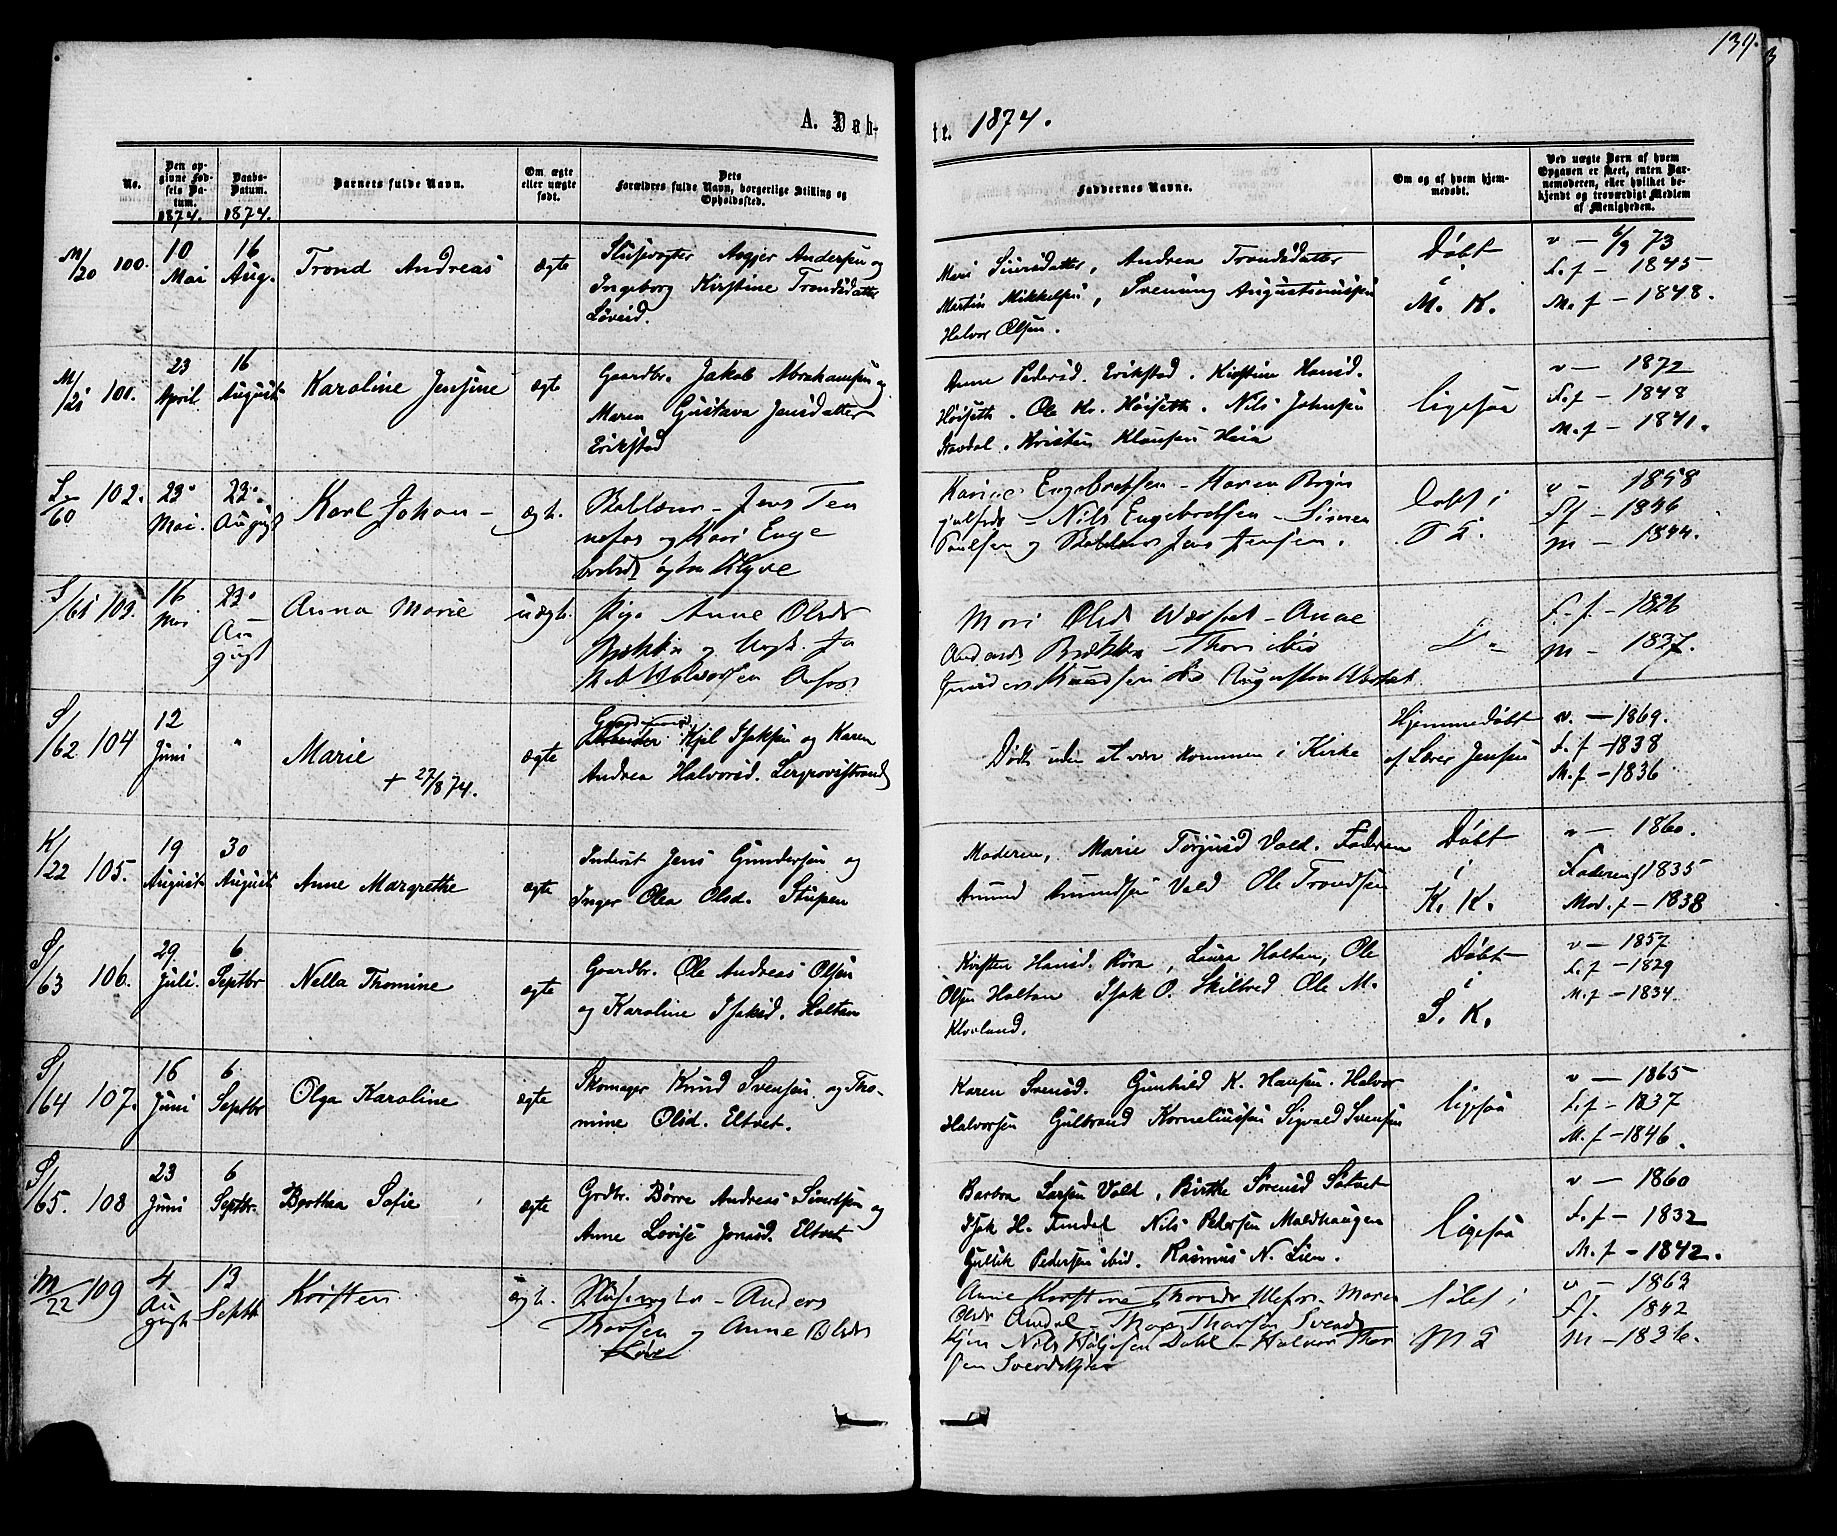 139.
A. Døb-
te. 1874.
No.
Den op-
givne Fød-
sels Da-
tum.
1874.
Daabs-
Datum.
1874.
Barnets fulde Navn.
Om ægte
eller uægte
født.
Dets
Forældres fulde Navn, borgerlige Stilling og
Opholdssted.
Faddernes Navne.
Om og af hvem hjem-
medøbt.
Ved uægte Børn af hvem
Opgaven er skeet, enten Bar-
nemoderen, eller hvilket be-
kjendt og troværdigt Medlem
af Menigheden.
M/20 100.
10
Mai
16
Aug.
Trond Andreas
ægte
Slusevogter Asgjer Andersen og
Ingeborg Kirstine Trondsdatter
Løveid.
Mari Siversdatter, Andrea Trondsdatter
Martin Mikkelsen, Svenung Augustinussen
Halvor Olsen.
Døbt
i
M. K.
v – 6/9 73
F. f – 1845
M. f – 1848.
M/21 101.
23
April
16
August
Karoline Jensine
ægte
Gaardbr. Jakob Abrahamsen og
Maren Gustava Jensdatter
Erikstad
Anne Pedersd. Erikstad. Kirstine Hansd.
Høiseth. Ole Kr. Høiseth. Nils Johnsen
Stavdal. Kristen Klausen Heia
ligesaa
v – 1872
F. f – 1848
M. f – 1841.
S/60 102.
23
Mai.
23
August
Karl Johan
ægt.
Jens Ten
nefos og Kari Enge
Klyve
Karine Engebretsen – Maren
– Nils Engebretsen – Simen
Paulsen og Jens Jensen.
Døbt i
v – 1858
Ff – 1846
m – 1844.
S/61 103.
16
Mai
23
Au
gust
Anna Marie
uægt.
Pige Anne Olsdr
og Ungk. Ja
kob Halvorsen
Mari Olsd – Anne
Andersd –
Gunder Knudsen
D –
F. f – 1826
m – 1837.
S/62 104
12
Juni
"
Marie
+ 27/8 74.
ægte
Gaardmand
Kjil Isaksen og Karen
Andrea Halvorsd.
Døde uden at være kommen i Kirke
Hjemmedøbt
af Sører Jensen
v. – 1869.
F. f – 1838
M. f – 1836
K/22 105.
19
August
30
August
Anne Margrethe
ægte
Inderst Jens Gundersen og
Inger Olea Olsd. Stupen
Moderen, Marie Torjusd Vald. Faderen
Amund Amundsen Vald Ole Trondsen
Døbt
i
K. K.
v – 1860.
Faderens f 1835
Mod. f – 1838
S/63 106.
29
Juli.
6
Septbr
Nella Thomine
ægte
Gaardbr. Ole Andreas Olsen
og Karoline Isaksd. Holtan
Kirsten Hansd. Røra, Laura Holtan, Ole
Olsen Holtan Isak O. Skilbred Ole M.
Klovland.
Døbt
i
S. K.
v – 1857
F. f – 1829
M. f – 1834.
S/64 107.
16
Juni
6
Septbr
Olga Karoline
ægte
Skomager Knud Svensen og Tho-
mine Olsd. Eltvet.
Karen Svensd. Gunhild K. Hansen. Halvor
Halvorsen Gulbrand Korneliussen Sigvald Svensen
ligesaa
v – 1865
F. f – 1837
M. f – 1846.
S/65. 108
23
Juni
6
Septbr.
Berthea Sofie
ægte
Grdbr. Børre Andreas Sivertsen og
Anne Lovise Jonasd. Eltvet
Barbra Larsen Vold, Birthe Sørensd Solvet
Isak H. Findal Nils Pedersen Moldhaugen
Gullik Pedersen ibid. Rasmus N. Lien.
ligesaa
v – 1860
F. f – 1832
M. f – 1842.
M/22 109
4
Au
gust
13
Septb
Kristen
ægt.
Slusevogter – Anders
Thorsen og Anne Olsdr
Anne Kirstine Thorsdr Ulefos. Maren
Olsdr – Thor Thorsen Svend
Nils Dahl – Halvor Thor
sen
Døbt i
v – 1863
Ff. – 1842
m – 1836.